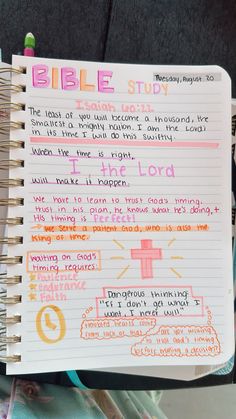 BIBLE STUDY
Tuesday, August 20
Isaiah 60:22
The least of you will become a thousand, the
smallest a mighty nation. I am the Lord;
in its time I will do this swiftly.
When the time is right,
I the Lord
will make it happen.
We have to learn to trust God's timing.
Trust in his plan, he knows what he's doing, +
His timing is Perfect!
We serve a patient God, who is also the
King of time.
Waiting on God's
timing requires:
Patience
Endurance
Faith
Dangerous thinking:
"If I don't get what I
want, I never will"
troubled hearts come
from lack of trust
are you willing
to trust God's timing
before making a decision?